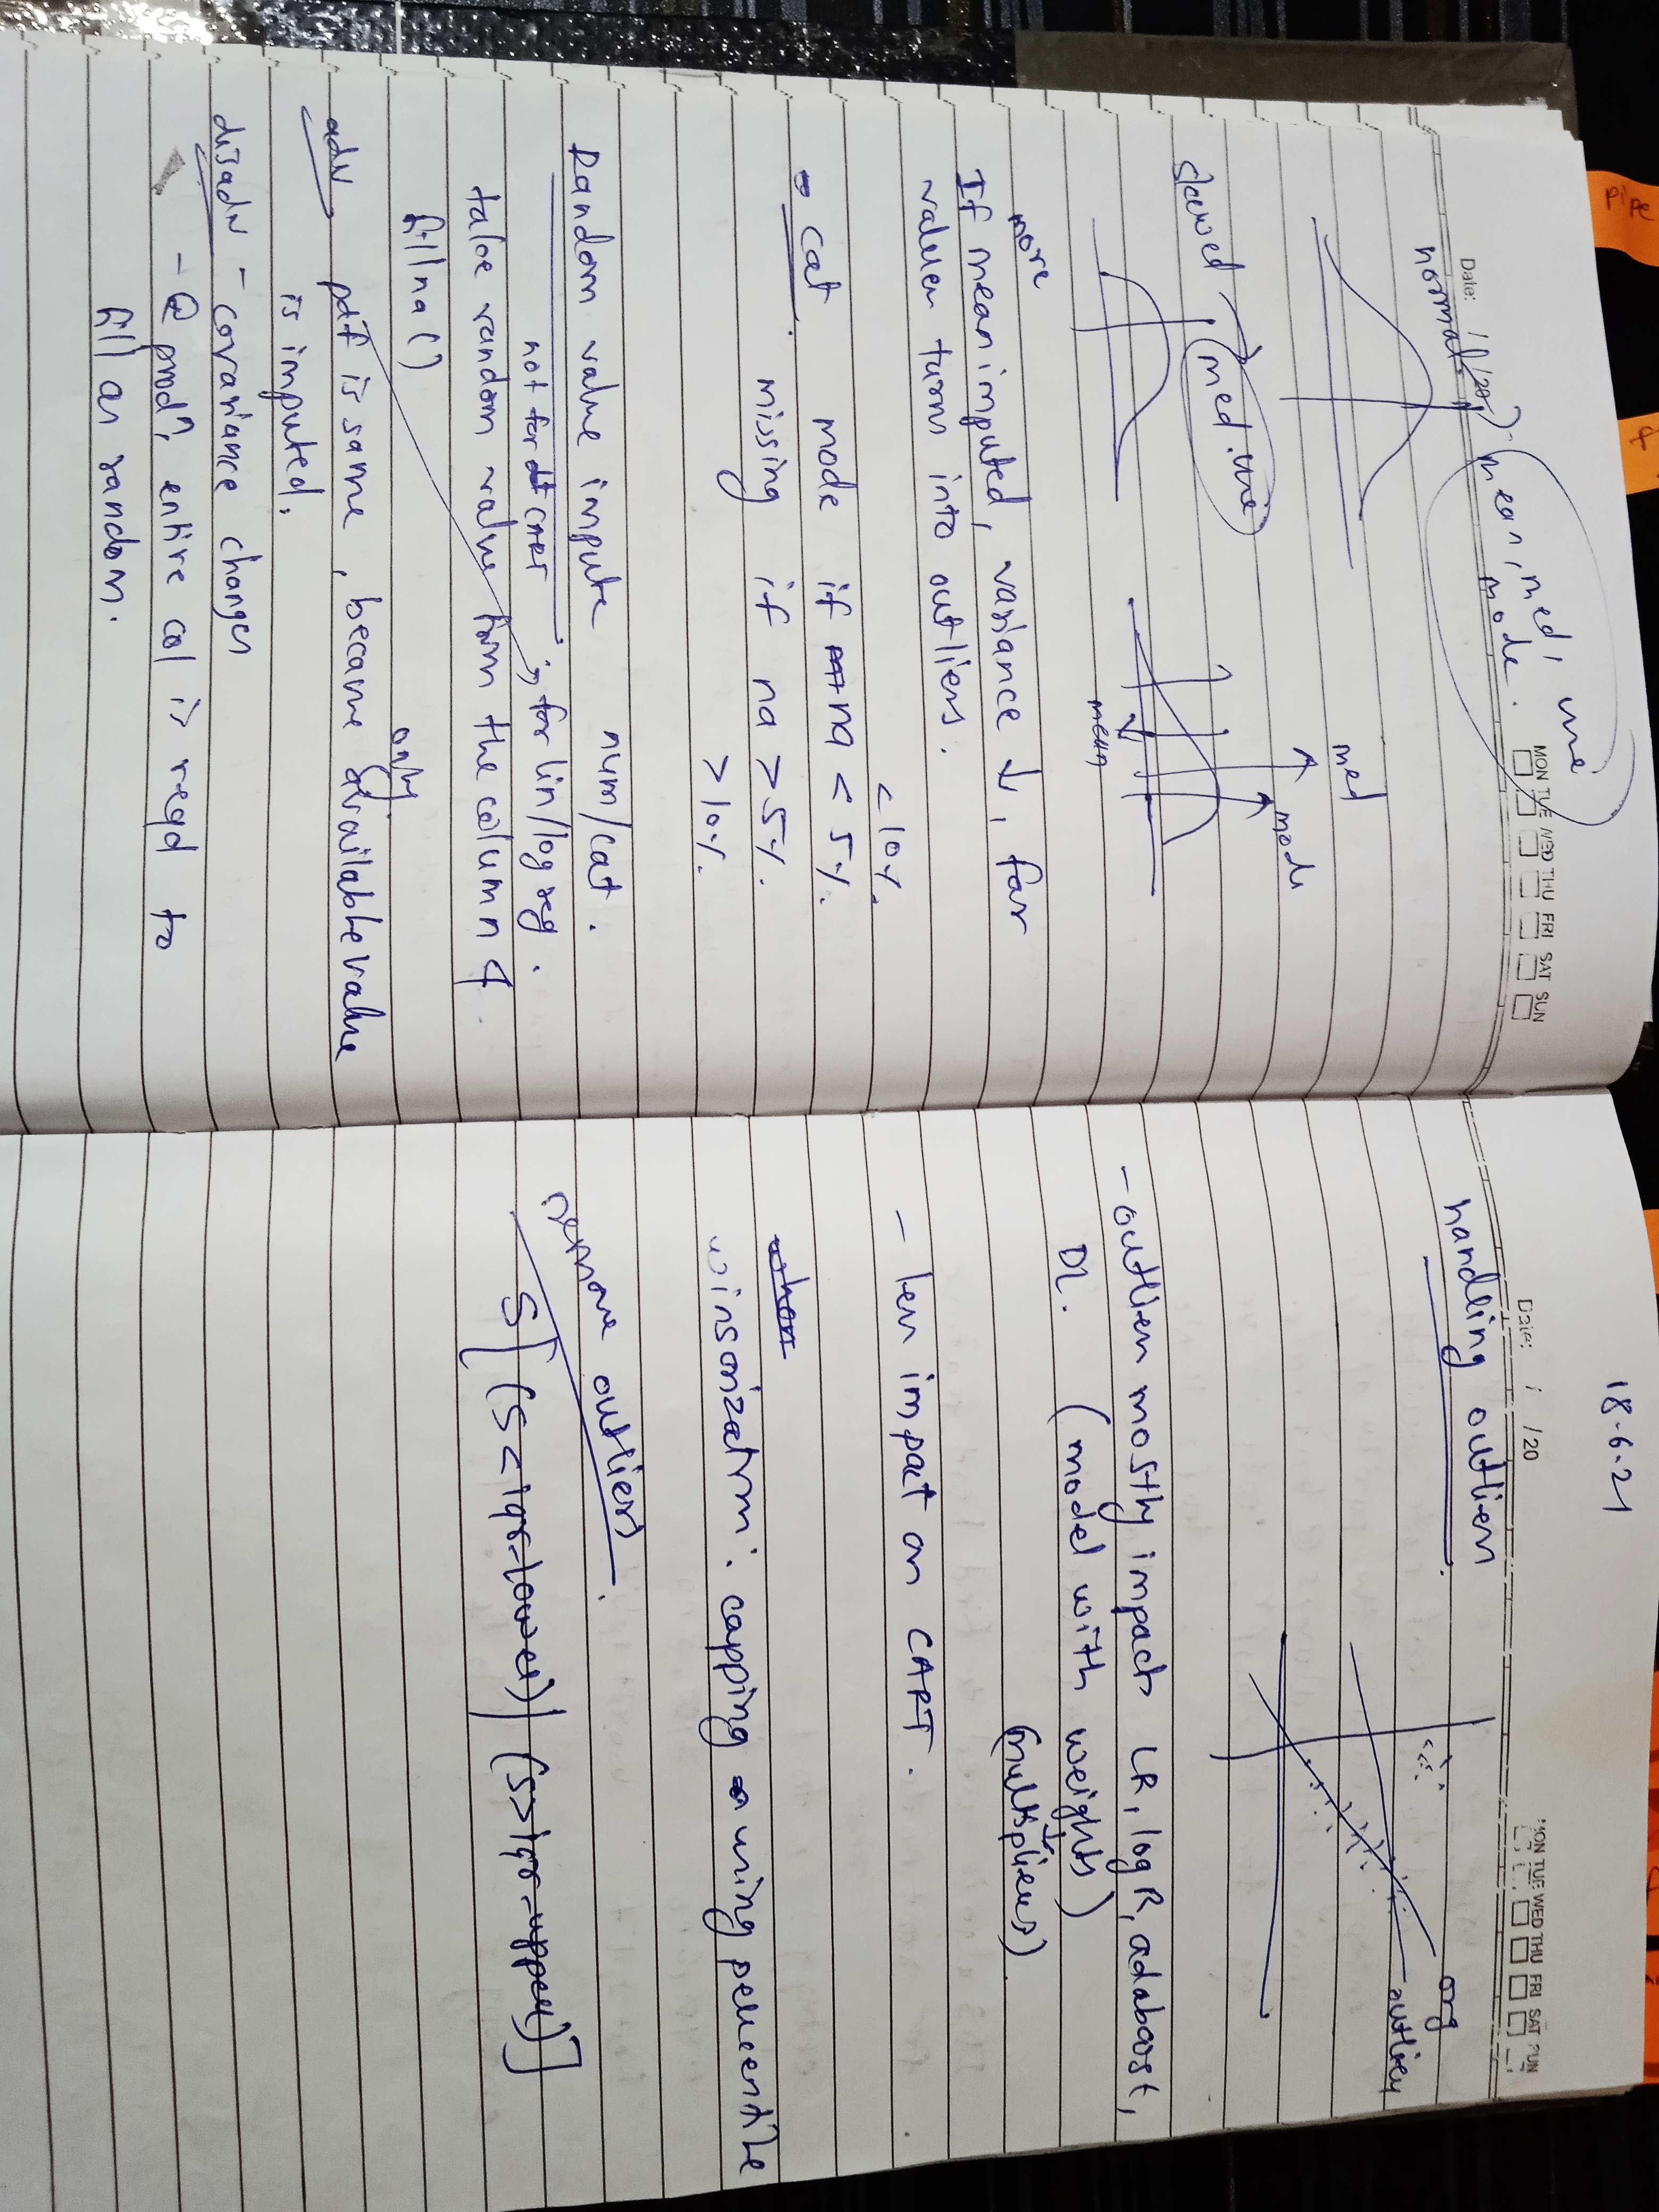 Date: / /20
MON TUE WED THU FRI SAT SUN
normal
mean, med, mode. use
skewed → med. use
med
mode
mean
If mean imputed, variance ↓, far
more values turn into outliers.
- cat.
mode if na < 5%. < 10%.
missing if na > 5%.
> 10%.
Random value impute num/cat.
not for CART ; for lin/log reg.
take random value from the column &
fillna()
adv pdf is same, because available value
only is imputed.
disadv - covariance changes
- @ prodn, entire col is reqd to
fill as random.
pipe
18-6-21
Date: / /20
MON TUE WED THU FRI SAT SUN
handling outliers
org
outlier
- outliers mostly impacts LR, log R, adaboost,
DL. (model with weights)
(multipliers)
- less impact on CART.
winsorization: capping using percentile
remove outliers.
S[(S < iqr-lower) | (S > iqr-upper)]